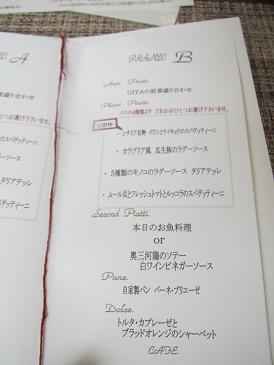 A
PRANZO B
Anti Piatti.
GITAの前菜盛り合わせ
Primi Piatti.
パスタ4種類より どれかおひとつお選び下さいませ。
・シチリア名物 イワシとウイキョウのスパゲッティーニ
・カラブリア風 瓜生豚のラグーソース
・5種類のキノコのラグーソース タリアテッレ
・ムール貝とフレッシュトマトとルッコラのスパゲッティーニ
Second Piatti.
本日のお魚料理
or
奥三河鶏のソテー
白ワインビネガーソース
Pane.
自家製パン パーネ・プリエーゼ
Dolce.
トルタ・カプレーゼと
ブラッドオレンジのシャーベット
CAFE.
盛り合わせ
とつお選び下さいませ。
のスパゲッティーニ
ラグーソース
タリアテッレ
ラのスパゲッティーニ